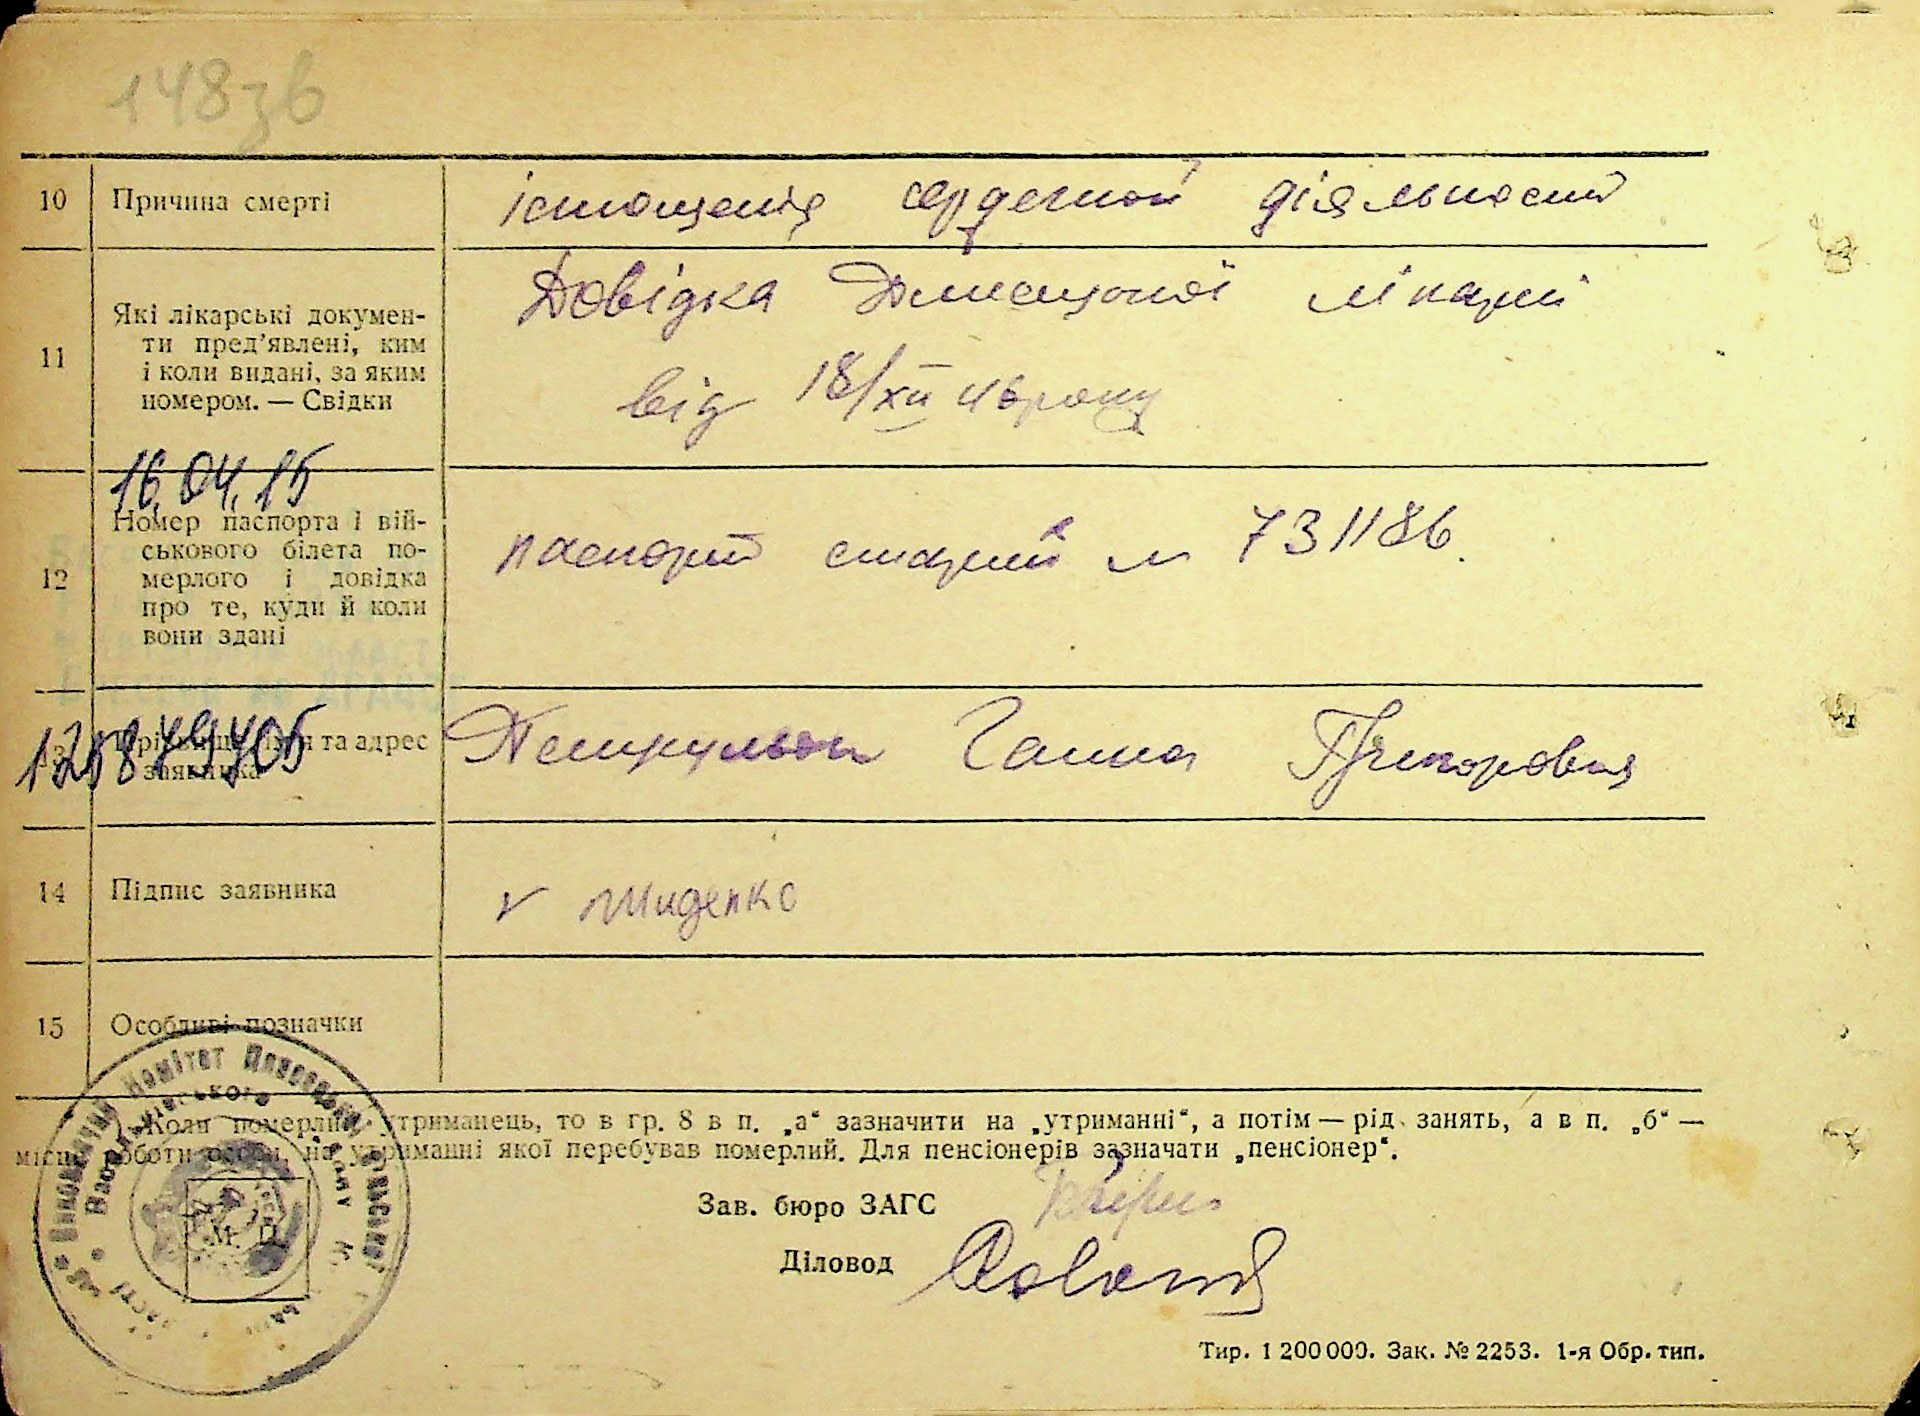 148зв
10 Причина смерті істощенія сердечной діяльности
11 Які лікарські докумен-
ти пред'явлені, ким
і коли видані, за яким
номером. — Свідки
Довідка лікарні
від 18/XII
16.04.15
12 Номер паспорта і вій-
ськового білета по-
мерлого і довідка
про те, куди й коли
вони здані
паспорт старий № 731186.
та адрес
заявника
Ганна Григоровна
14 Підпис заявника v
15 Особливі позначки
Коли померлий утриманець, то в гр. 8 в п. „а“ зазначити на „утриманні“, а потім — рід занять, а в п. „б“ —
місце роботи особи, на утриманні якої перебував померлий. Для пенсіонерів зазначати „пенсіонер“.
Зав. бюро ЗАГС
Діловод
М. П.
Тир. 1 200 000. Зак. № 2253. 1-я Обр. тип.